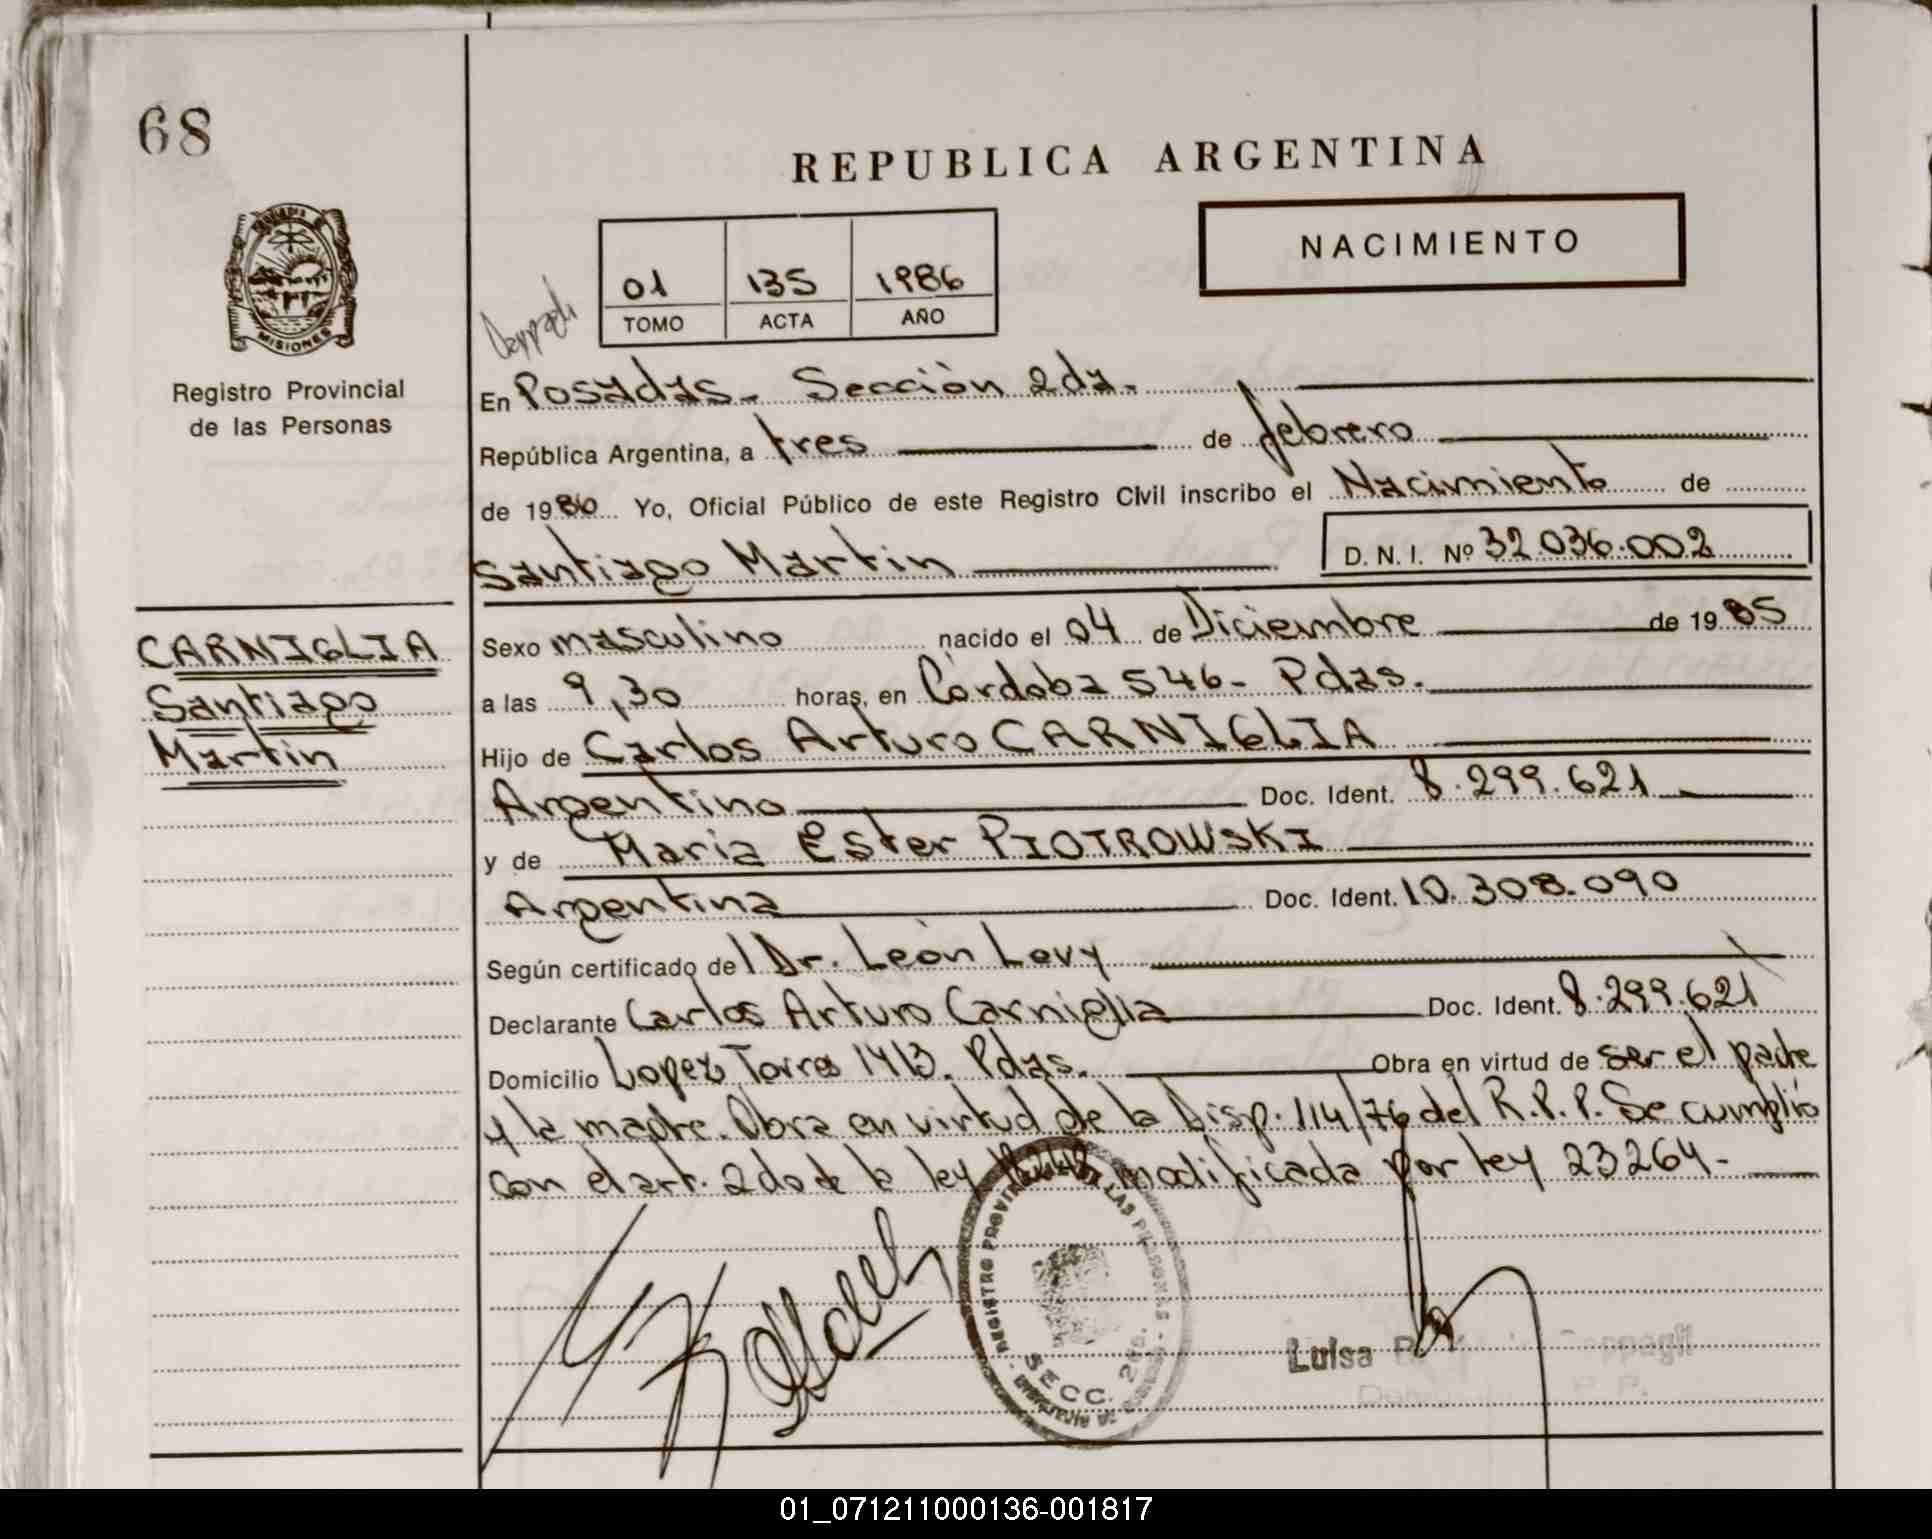 68
REPUBLICA ARGENTINA
NACIMIENTO
01 135 1986
TOMO ACTA AÑO
MISIONES
Registro Provincial
de las Personas
En Posadas. Sección 2da.
República Argentina, a tres de febrero
de 1986 Yo, Oficial Público de este Registro Civil inscribo el Nacimiento de
Santiago Martin D. N. I. Nº 32.036.002
CARNIGLIA
Santiago
Martin
Sexo masculino nacido el 04 de Diciembre de 1985
a las 9,30 horas, en Córdoba 546- Pdas.
Hijo de Carlos Arturo CARNIGLIA
Argentino Doc. Ident. 8.299.621
y de Maria Ester PIOTROWSKI
Argentina Doc. Ident. 10.308.090
Según certificado del Dr. León Levy
Declarante Carlos Arturo Carniglia Doc. Ident. 8.299.621
Domicilio Lopez Torres 1413. Pdas. Obra en virtud de ser el padre
y la madre. Obra en virtud de la Disp. 114/76 del R.P.P. Se cumplió
con el art. 2do de la ley modificada por ley 23264-
REGISTRO PROVINCIAL DE LAS PERSONAS
SECC. 2da.
Luisa
01_071211000136-001817